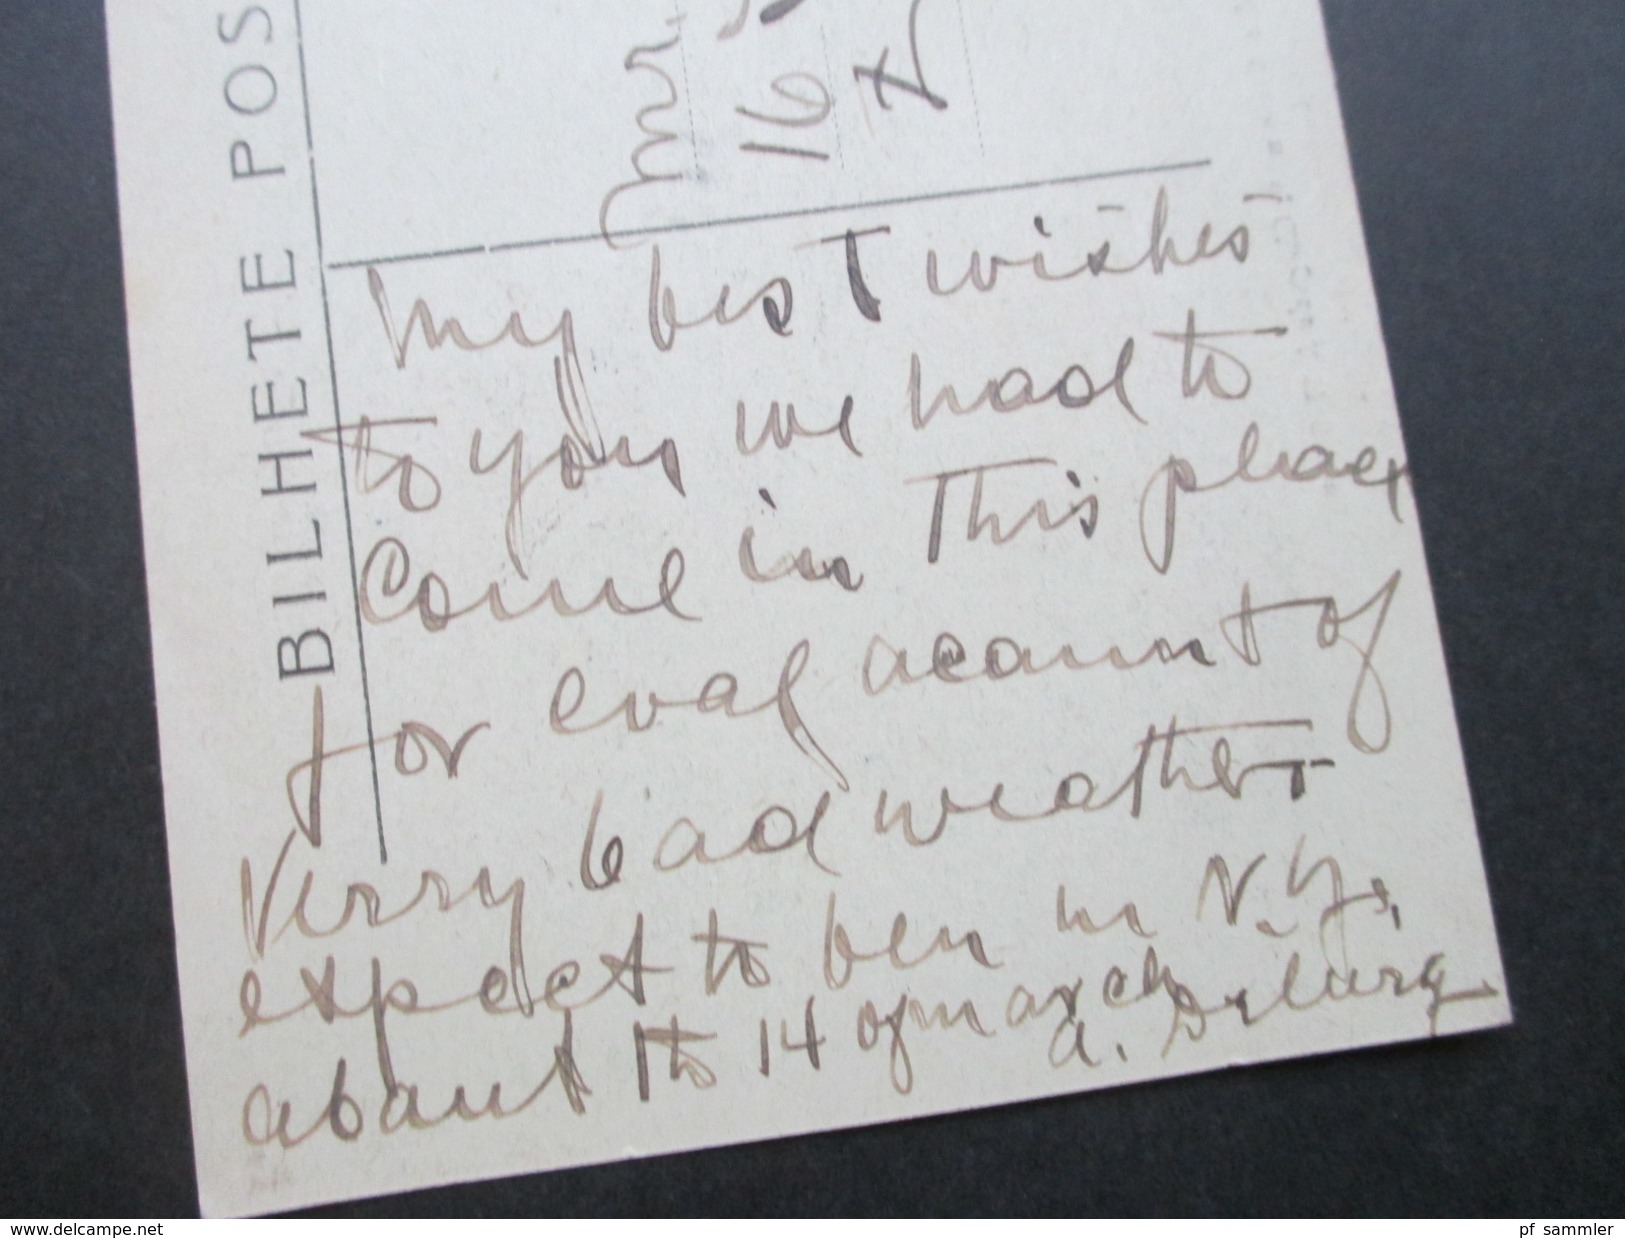 BILHETE POS
Mr.
16
My best wishes
to you we had to
Come in this place
for coal acount of
Verry bad weather
expect to ben in N.Y.
about 1 to 14 of march
a.
www.delcampe.net
pf_sammler